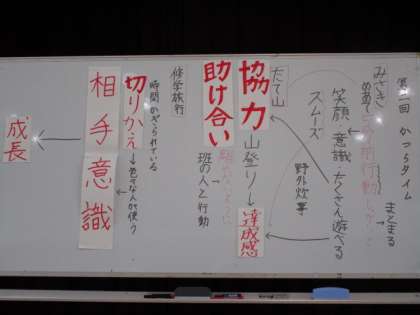 第一回 かつらタイム
みさき
めあて
まとまる
笑顔 意識 たくさん遊べる
スムーズ
野外炊事
たて山
協力
山登り→達成感
助け合い
班の人と行動
修学旅行
時間がきざられている
切りかえ
→色々な人が使う
相手意識
成長